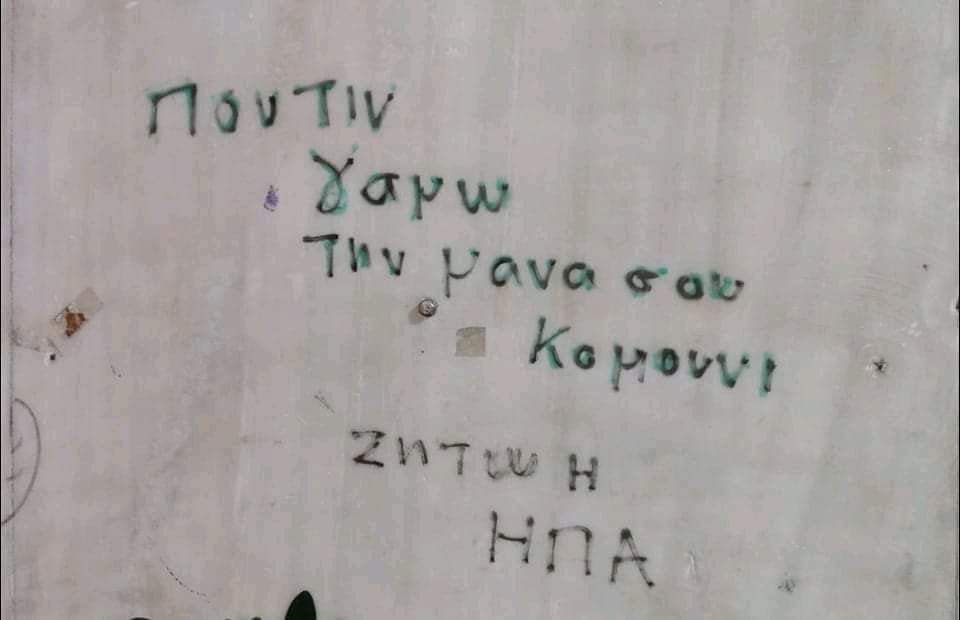 Πουτιν
γαμω
την μανα σου
Κομουνι
Ζητω η
ΗΠΑ